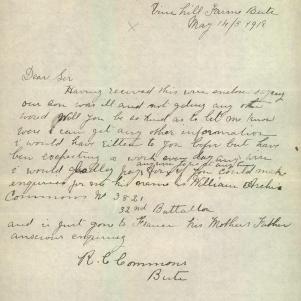 Vine Hill Farm Bute
May 14/5 1918
Dear Sir
Having received this wire enclose saying
our son was ill and not geting any other
word Will you be so kind as to let me know
were I can get any other information
i would have ritten to you befor but have
ben expecting a work every day any wire
i would gladly pay for if you could make
enquires for me his name is William Archie
Commons No 3821
32nd Battallon
and is just gone to France his Mother & Father
anscious enquiring
R. C Commons
Bute